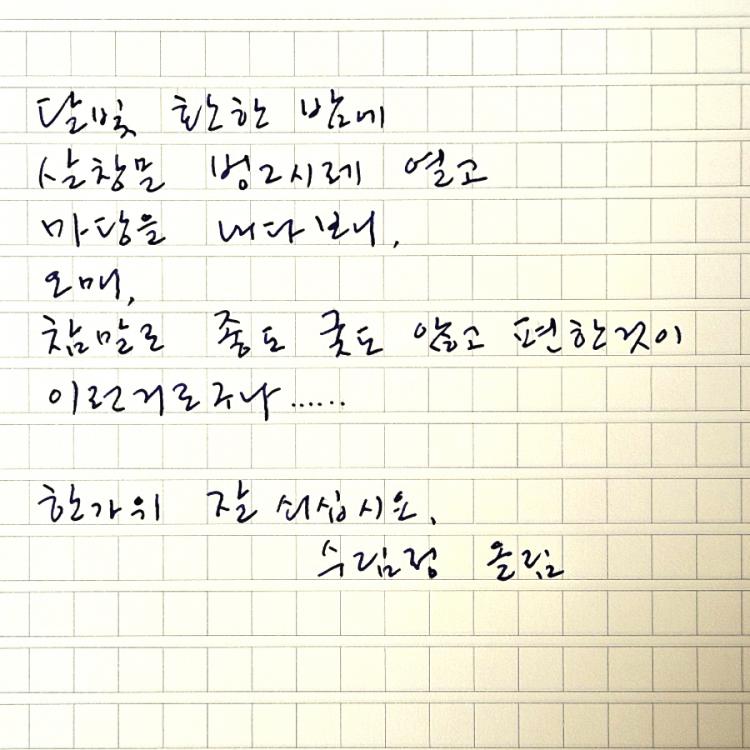 달빛 환한 밤에
살창문 벙그시레 열고
마당을 내다보니,
오매,
참말로 좋도 궂도 않고 편한것이
이런거로구나......
한가위 잘 쇠십시오.
수림정 올림